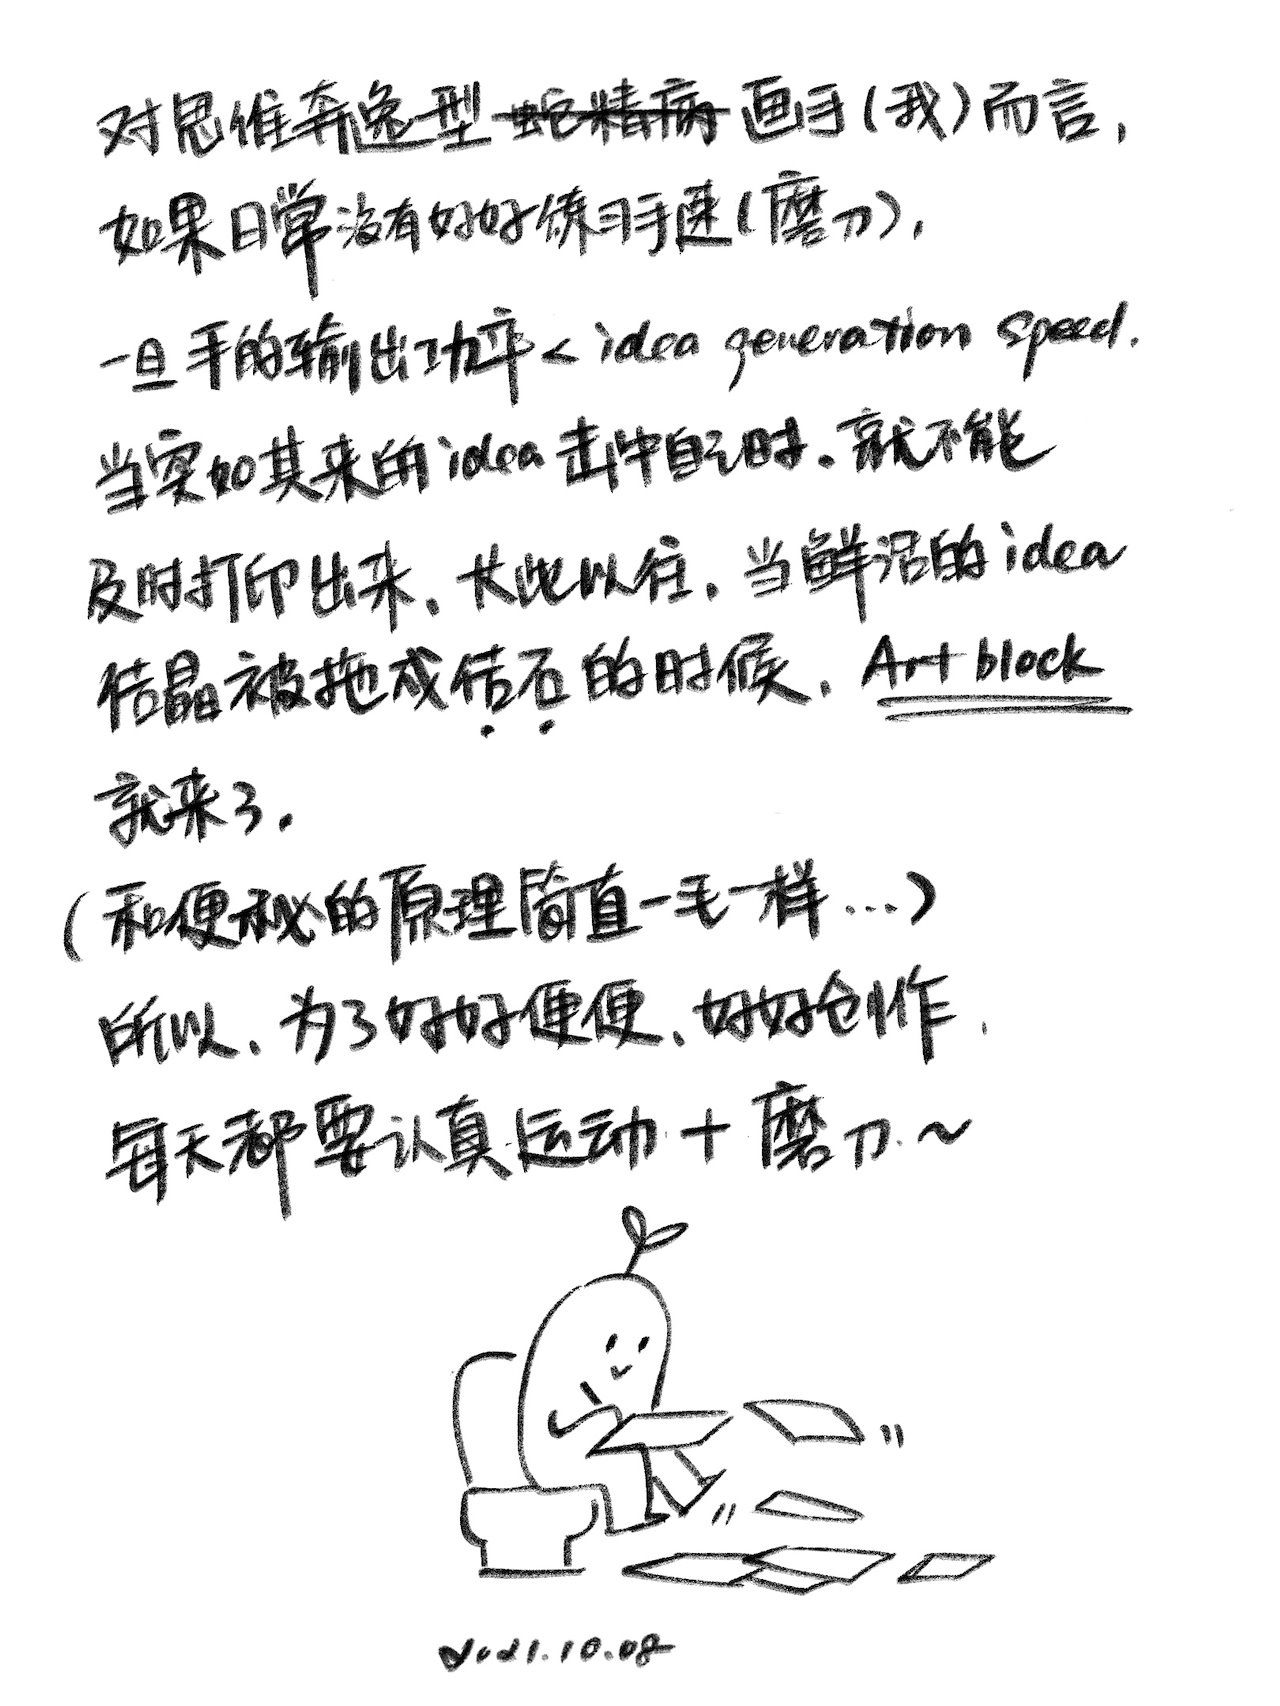 对思维奔逸型蛇精病画手(我)而言,
如果日常没有好好练习手速(磨刀),
一旦手的输出功率<idea generation speed.
当突如其来的idea击中自己时.就不能
及时打印出来.从此以往.当鲜活的idea
结晶被拖成结石的时候.Art block
就来了.
(和便秘的原理简直一毛一样...)
所以.为了好好便便.好好创作.
每天都要认真运动+磨刀~
2021.10.08